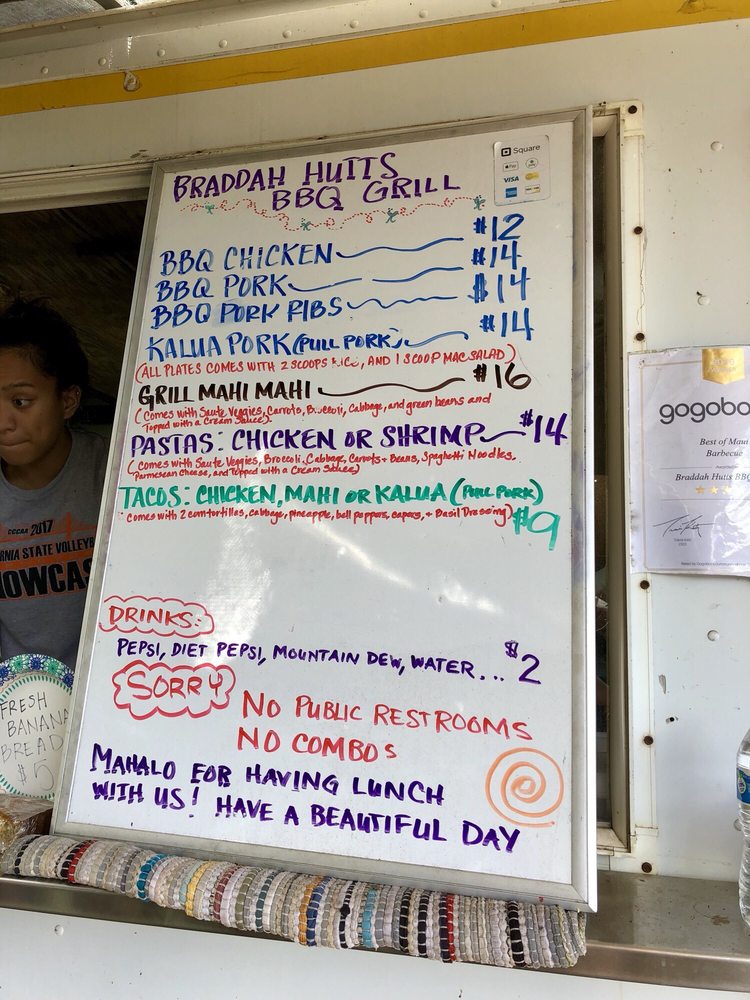 BRADDAH HUTTS
BBQ GRILL
Square
Pay
VISA
BBQ CHICKEN $12
BBQ PORK $14
BBQ PORK RIBS $14
KALUA PORK (PULL PORK) $14
(ALL PLATES COMES WITH 2 SCOOPS RICE, AND 1 SCOOP MAC SALAD)
GRILL MAHI MAHI $16
(Comes with Saute Veggies, Carrots, Broccoli, Cabbage, and green beans and
Topped with a Cream Sauce).
PASTAS: CHICKEN OR SHRIMP $14
(Comes with Saute Veggies, Brocoli, Cabbage, Carrots + Beans, Spaghetti Noodles.
Parmesean Cheese, and Topped with a Cream Sauce)
TACOS: CHICKEN, MAHI OR KALUA (PULL PORK)
Comes with 2 corn tortillas, cabbage, pineapple, bell peppers, capers, + Basil Dressing) $9
DRINKS:
PEPSI, DIET PEPSI, MOUNTAIN DEW, WATER... $2
SORRY NO PUBLIC RESTROOMS
NO COMBOS
MAHALO FOR HAVING LUNCH
WITH US! HAVE A BEAUTIFUL DAY
2017
STATE VOLLEY
FRESH
BANANA
BREAD
$5
gogobo
Best of Maui
Barbecue
Braddah Hutts BBQ